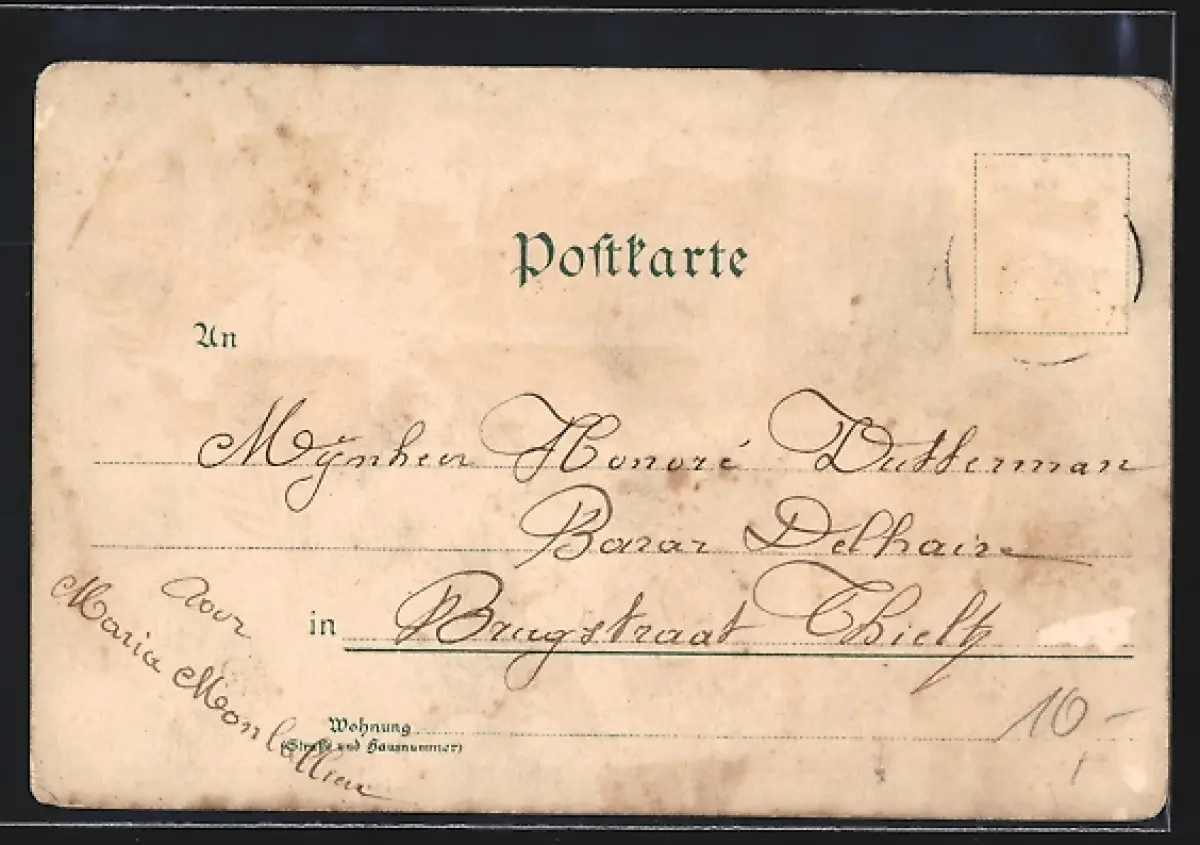 Postkarte
An
Mynheer Honoré Dutterman
Bazar Delhaize
in Brugstraat Thielt
voor
Maria
Wohnung
(Straße und Hausnummer)
10-